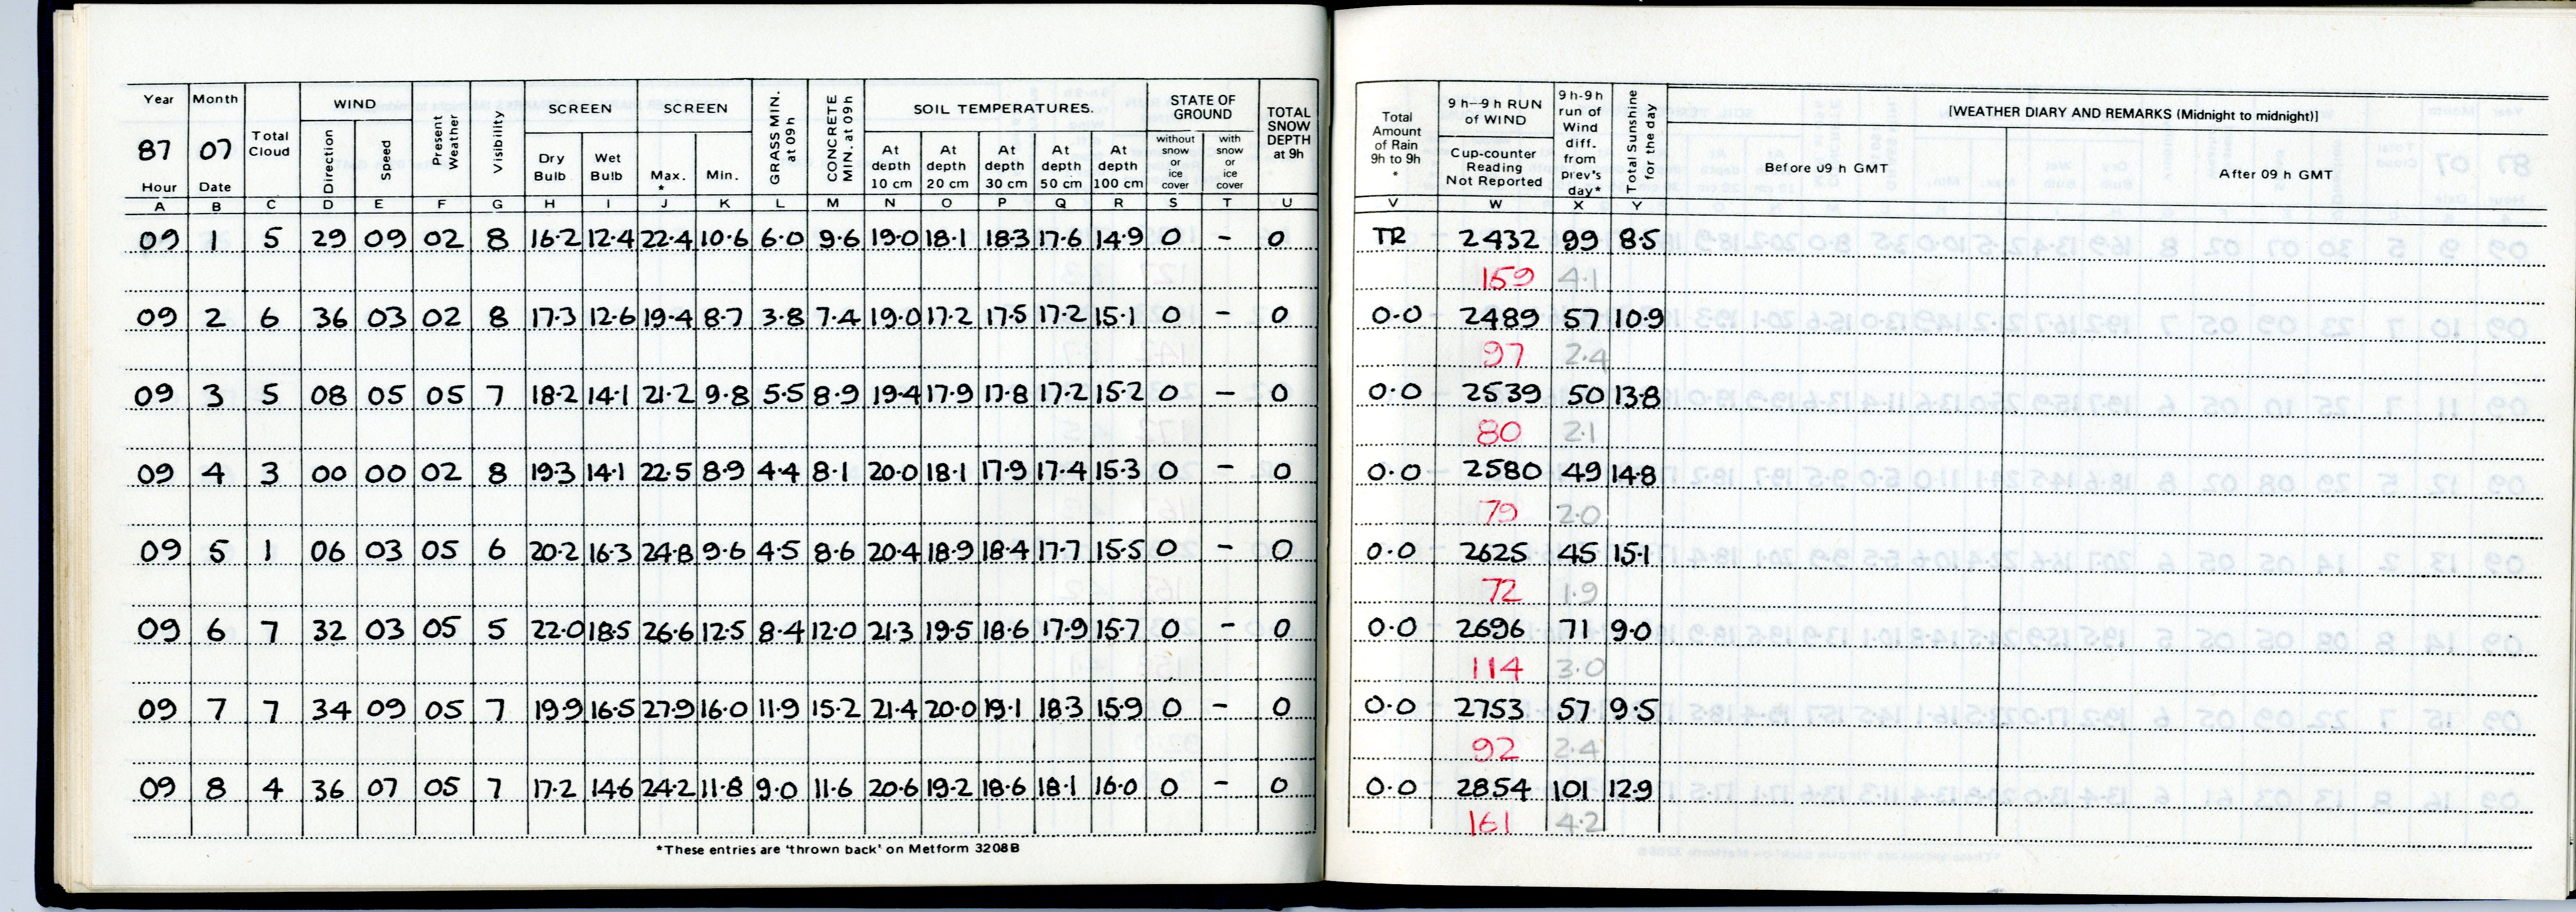 Year Month Total Cloud WIND Present Weather Visibility SCREEN SCREEN GRASS MIN. at 09h CONCRETE MIN. at 09h SOIL TEMPERATURES. STATE OF GROUND TOTAL SNOW DEPTH at 9h
87 07 Direction Speed Dry Bulb Wet Bulb Max. * Min. At depth 10 cm At depth 20 cm At depth 30 cm At depth 50 cm At depth 100 cm without snow or ice cover with snow or ice cover
Hour Date
A B C D E F G H I J K L M N O P Q R S T U
09 1 5 29 09 02 8 16.2 12.4 22.4 10.6 6.0 9.6 19.0 18.1 18.3 17.6 14.9 0 - 0
09 2 6 36 03 02 8 17.3 12.6 19.4 8.7 3.8 7.4 19.0 17.2 17.5 17.2 15.1 0 - 0
09 3 5 08 05 05 7 18.2 14.1 21.2 9.8 5.5 8.9 19.4 17.9 17.8 17.2 15.2 0 - 0
09 4 3 00 00 02 8 19.3 14.1 22.5 8.9 4.4 8.1 20.0 18.1 17.9 17.4 15.3 0 - 0
09 5 1 06 03 05 6 20.2 16.3 24.8 9.6 4.5 8.6 20.4 18.9 18.4 17.7 15.5 0 - 0
09 6 7 32 03 05 5 22.0 18.5 26.6 12.5 8.4 12.0 21.3 19.5 18.6 17.9 15.7 0 - 0
09 7 7 34 09 05 7 19.9 16.5 27.9 16.0 11.9 15.2 21.4 20.0 19.1 18.3 15.9 0 - 0
09 8 4 36 07 05 7 17.2 14.6 24.2 11.8 9.0 11.6 20.6 19.2 18.6 18.1 16.0 0 - 0
*These entries are 'thrown back' on Metform 3208B
Total Amount of Rain 9h to 9h * 9 h–9 h RUN of WIND 9 h-9 h run of Wind diff. from prev's day* Total Sunshine for the day [WEATHER DIARY AND REMARKS (Midnight to midnight)]
Cup-counter Reading Not Reported Before 09 h GMT After 09 h GMT
V W X Y
TR 2432 99 8.5
159 4.1
0.0 2489 57 10.9
97 2.4
0.0 2539 50 13.8
80 2.1
0.0 2580 49 14.8
79 2.0
0.0 2625 45 15.1
72 1.9
0.0 2696 71 9.0
114 3.0
0.0 2753 57 9.5
92 2.4
0.0 2854 101 12.9
161 4.2